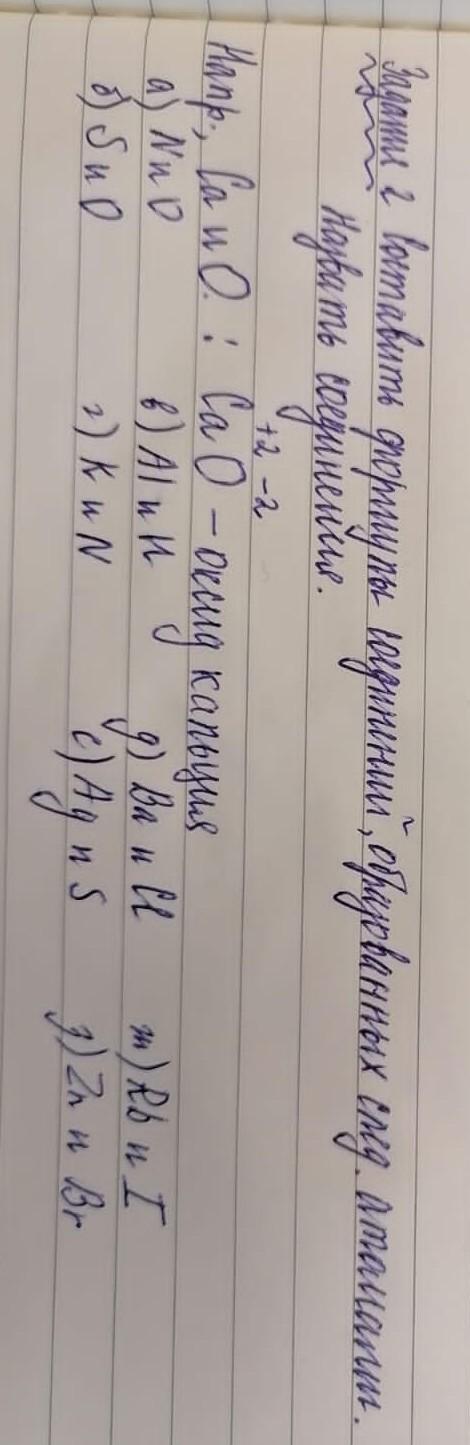 Задание 2 Составить формулы соединений, образованных след. атомами.
Назвать соединения.
Напр., Ca и O : Ca⁺²O⁻² – оксид кальция
а) N и O в) Al и H д) Ba и Cl ж) Rb и I
б) S и O г) K и N е) Ag и S з) Zn и Br